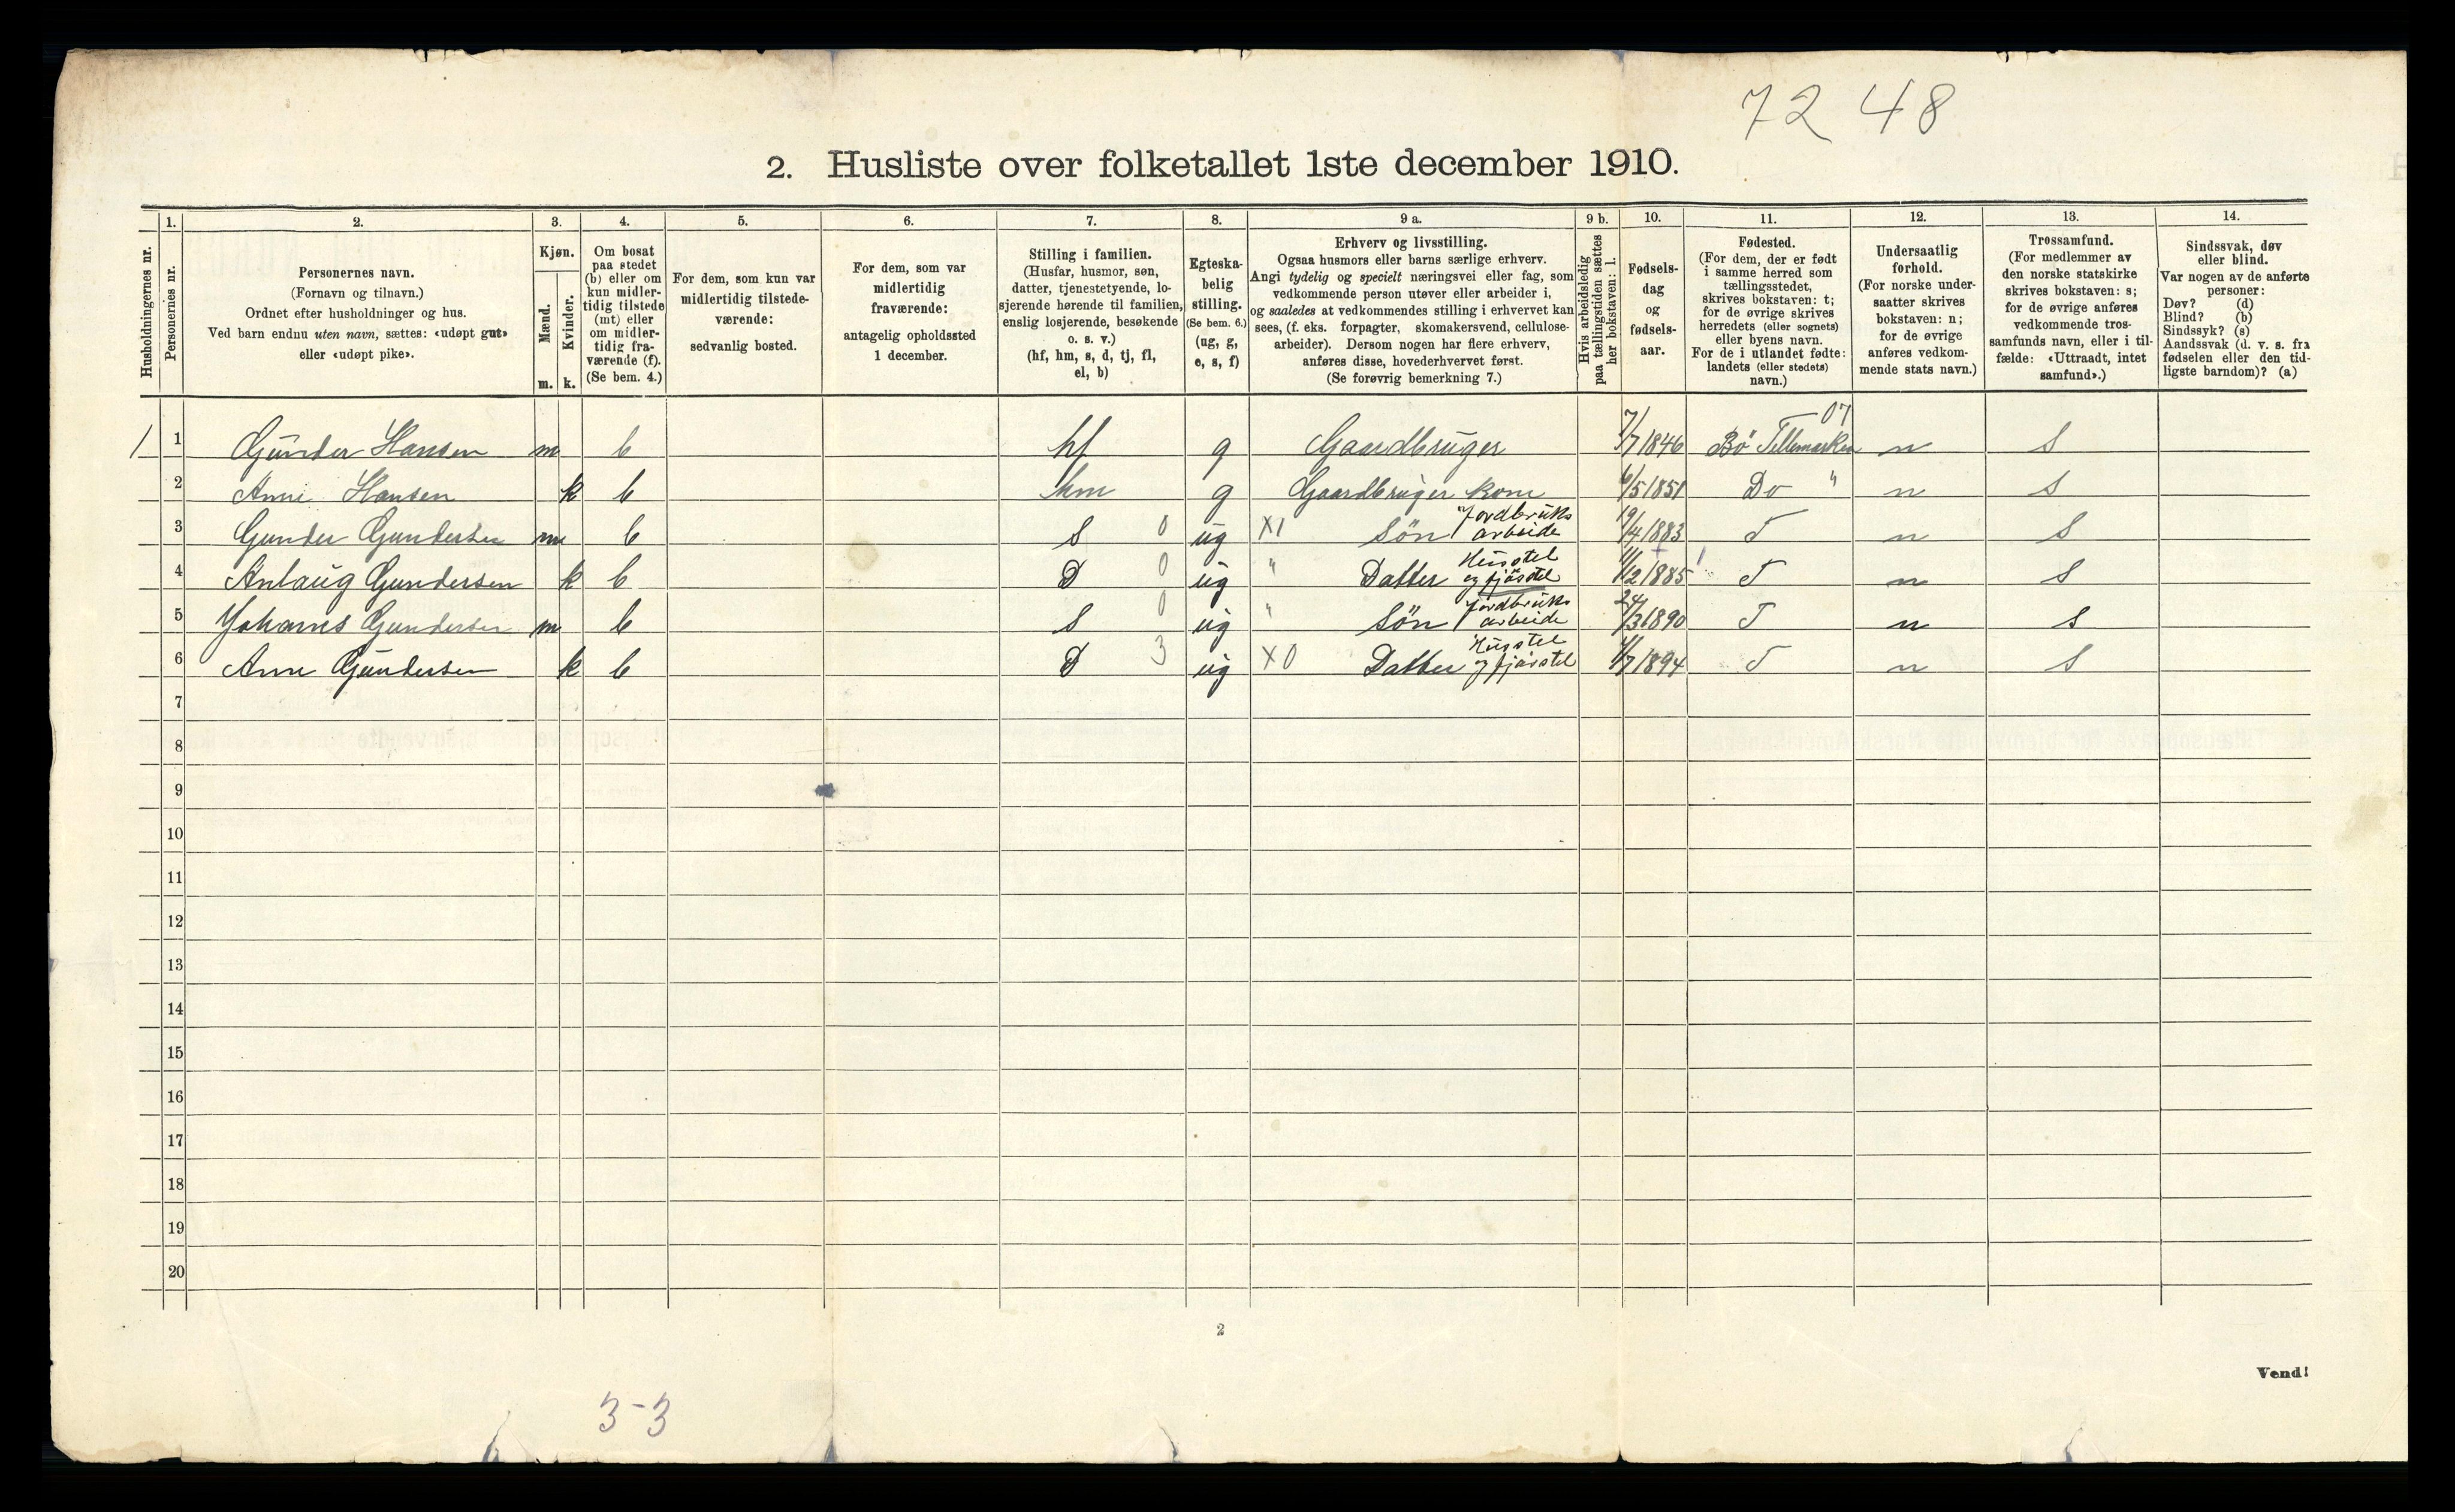 72 48
2. Husliste over folketallet 1ste december 1910.
Husholdningernes nr.
1.
Personernes nr.
2.
Personernes navn.
(Fornavn og tilnavn.)
Ordnet efter husholdninger og hus.
Ved barn endnu uten navn, sættes: «udøpt gut»
eller «udøpt pike».
3.
Kjøn.
Mænd.
m.
Kvinder.
k.
4.
Om bosat
paa stedet
(b) eller om
kun midler-
tidig tilstede
(mt) eller
om midler-
tidig fra-
værende (f).
(Se bem. 4.)
5.
For dem, som kun var
midlertidig tilstede-
værende:
sedvanlig bosted.
6.
For dem, som var
midlertidig
fraværende:
antagelig opholdssted
1 december.
7.
Stilling i familien.
(Husfar, husmor, søn,
datter, tjenestetyende, lo-
sjerende hørende til familien,
enslig losjerende, besøkende
o. s. v.)
(hf, hm, s, d, tj, fl,
el, b)
8.
Egteska-
belig
stilling.
(Se bem. 6.)
(ug, g,
e, s, f)
9 a.
Erhverv og livsstilling.
Ogsaa husmors eller barns særlige erhverv.
Angi tydelig og specielt næringsvei eller fag, som
vedkommende person utøver eller arbeider i,
og saaledes at vedkommendes stilling i erhvervet kan
sees, (f. eks. forpagter, skomakersvend, cellulose-
arbeider). Dersom nogen har flere erhverv,
anføres disse, hovederhvervet først.
(Se forøvrig bemerkning 7.)
9 b.
Hvis arbeidsledig
paa tællingstiden sættes
her bokstaven: l.
10.
Fødsels-
dag
og
fødsels-
aar.
11.
Fødested.
(For dem, der er født
i samme herred som
tællingsstedet,
skrives bokstaven: t;
for de øvrige skrives
herredets (eller sognets)
eller byens navn.
For de i utlandet fødte:
landets (eller stedets)
navn.)
12.
Undersaatlig
forhold.
(For norske under-
saatter skrives
bokstaven: n;
for de øvrige
anføres vedkom-
mende stats navn.)
13.
Trossamfund.
(For medlemmer av
den norske statskirke
skrives bokstaven: s;
for de øvrige anføres
vedkommende tros-
samfunds navn, eller i til-
fælde: «Uttraadt, intet
samfund».)
14.
Sindssvak, døv
eller blind.
Var nogen av de anførte
personer:
Døv? (d)
Blind? (b)
Sindssyk? (s)
Aandssvak (d. v. s. fra
fødselen eller den tid-
ligste barndom)? (a)
07
1 1 Gunder Hansen m b hf g Gaardbruger 7/7 1846 Bø Tellemarken n S
2 Anne Hansen k b hm g Gaardbruger kone 6/5 1851 Do " n S
3 Gunder Gundersen m b S 0 ug X1 Søn Jordbruks arbeide 19/4 1883 T n S
4 Anlaug Gundersen k b D 0 ug " Datter Husstel og fjøsstel 11/12 1885 T n S
5 Johannes Gundersen m b S 0 ug " Søn Jordbruks arbeide 24/3 1890 T n S
6 Anne Gundersen k b D 3 ug X0 Datter Husstel og fjøsstel /7 1894 T n S
7
8
9
10
11
12
13
14
15
16
17
18
19
20
2
Vend!
3-3